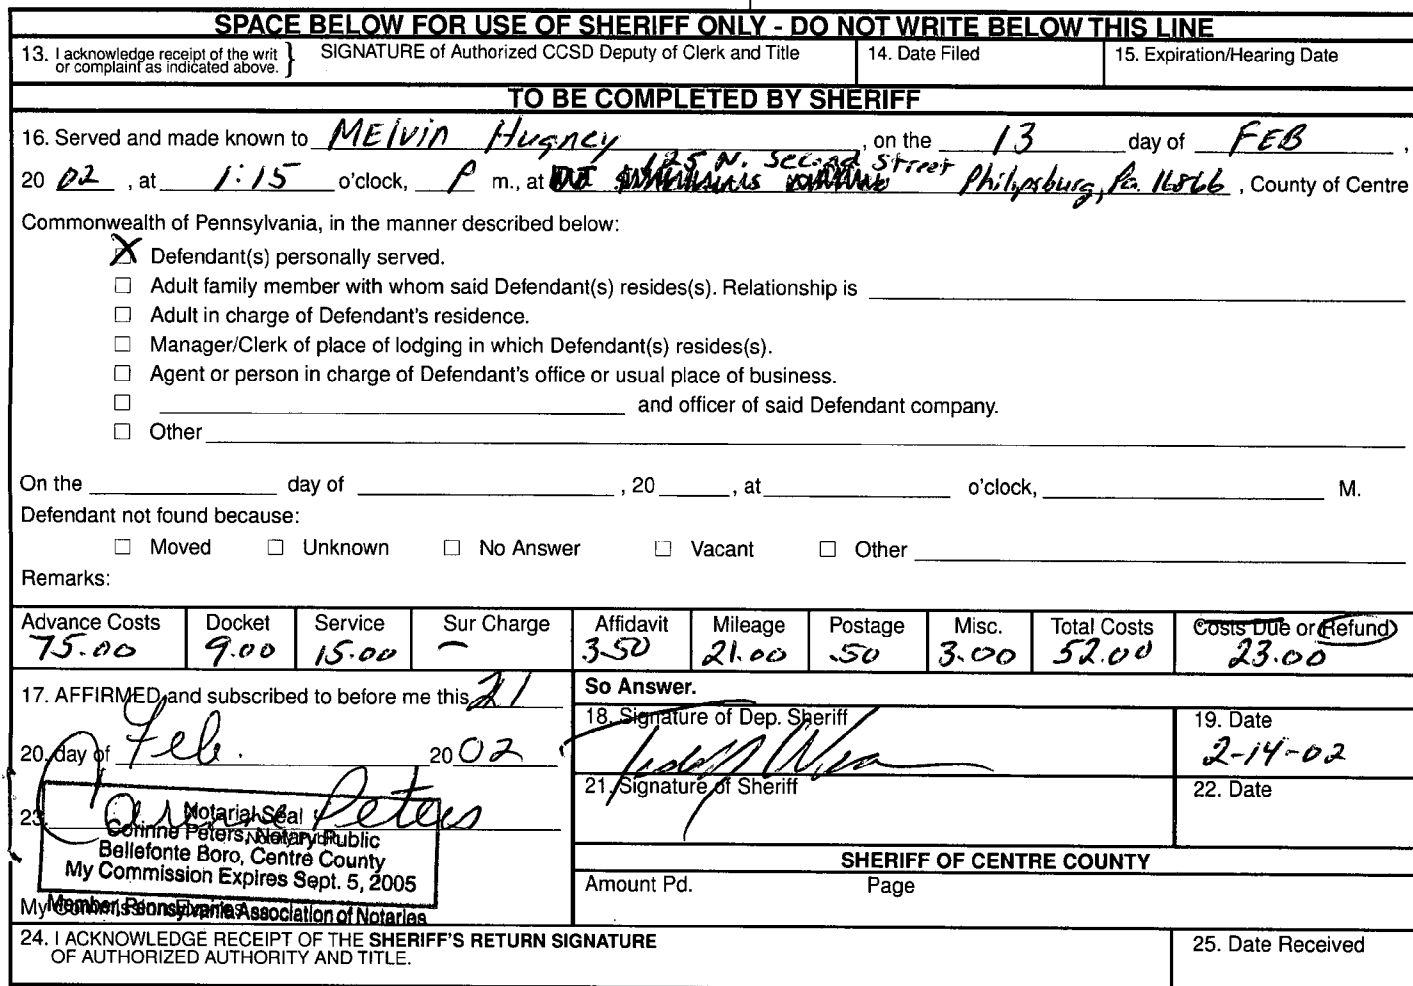 SPACE BELOW FOR USE OF SHERIFF ONLY - DO NOT WRITE BELOW THIS LINE
13. I acknowledge receipt of the writ or complaint as indicated above. } SIGNATURE of Authorized CCSD Deputy of Clerk and Title 14. Date Filed 15. Expiration/Hearing Date
TO BE COMPLETED BY SHERIFF
16. Served and made known to MElvin Hugney, on the 13 day of FEB,
125 N. Second Street
20 02, at 1:15 o'clock, P m., at Philipsburg, Pa. 16866, County of Centre
Commonwealth of Pennsylvania, in the manner described below:
X Defendant(s) personally served.
☐ Adult family member with whom said Defendant(s) resides(s). Relationship is
☐ Adult in charge of Defendant's residence.
☐ Manager/Clerk of place of lodging in which Defendant(s) resides(s).
☐ Agent or person in charge of Defendant's office or usual place of business.
☐ and officer of said Defendant company.
☐ Other
On the day of , 20 , at o'clock, M.
Defendant not found because:
☐ Moved ☐ Unknown ☐ No Answer ☐ Vacant ☐ Other
Remarks:
Advance Costs Docket Service Sur Charge Affidavit Mileage Postage Misc. Total Costs Costs Due or Refund
75.00 9.00 15.00 — 3.50 21.00 .50 3.00 52.00 23.00
17. AFFIRMED and subscribed to before me this 21
So Answer.
20. day of Feb. 20 02
18. Signature of Dep. Sheriff
19. Date
2-14-02
21. Signature of Sheriff
22. Date
23. Corinne Peters
Notarial Seal
Corinne Peters, Notary Public
Bellefonte Boro, Centre County
My Commission Expires Sept. 5, 2005
Member, Pennsylvania Association of Notaries
My Commission Expires
SHERIFF OF CENTRE COUNTY
Amount Pd. Page
24. I ACKNOWLEDGE RECEIPT OF THE SHERIFF'S RETURN SIGNATURE
OF AUTHORIZED AUTHORITY AND TITLE.
25. Date Received